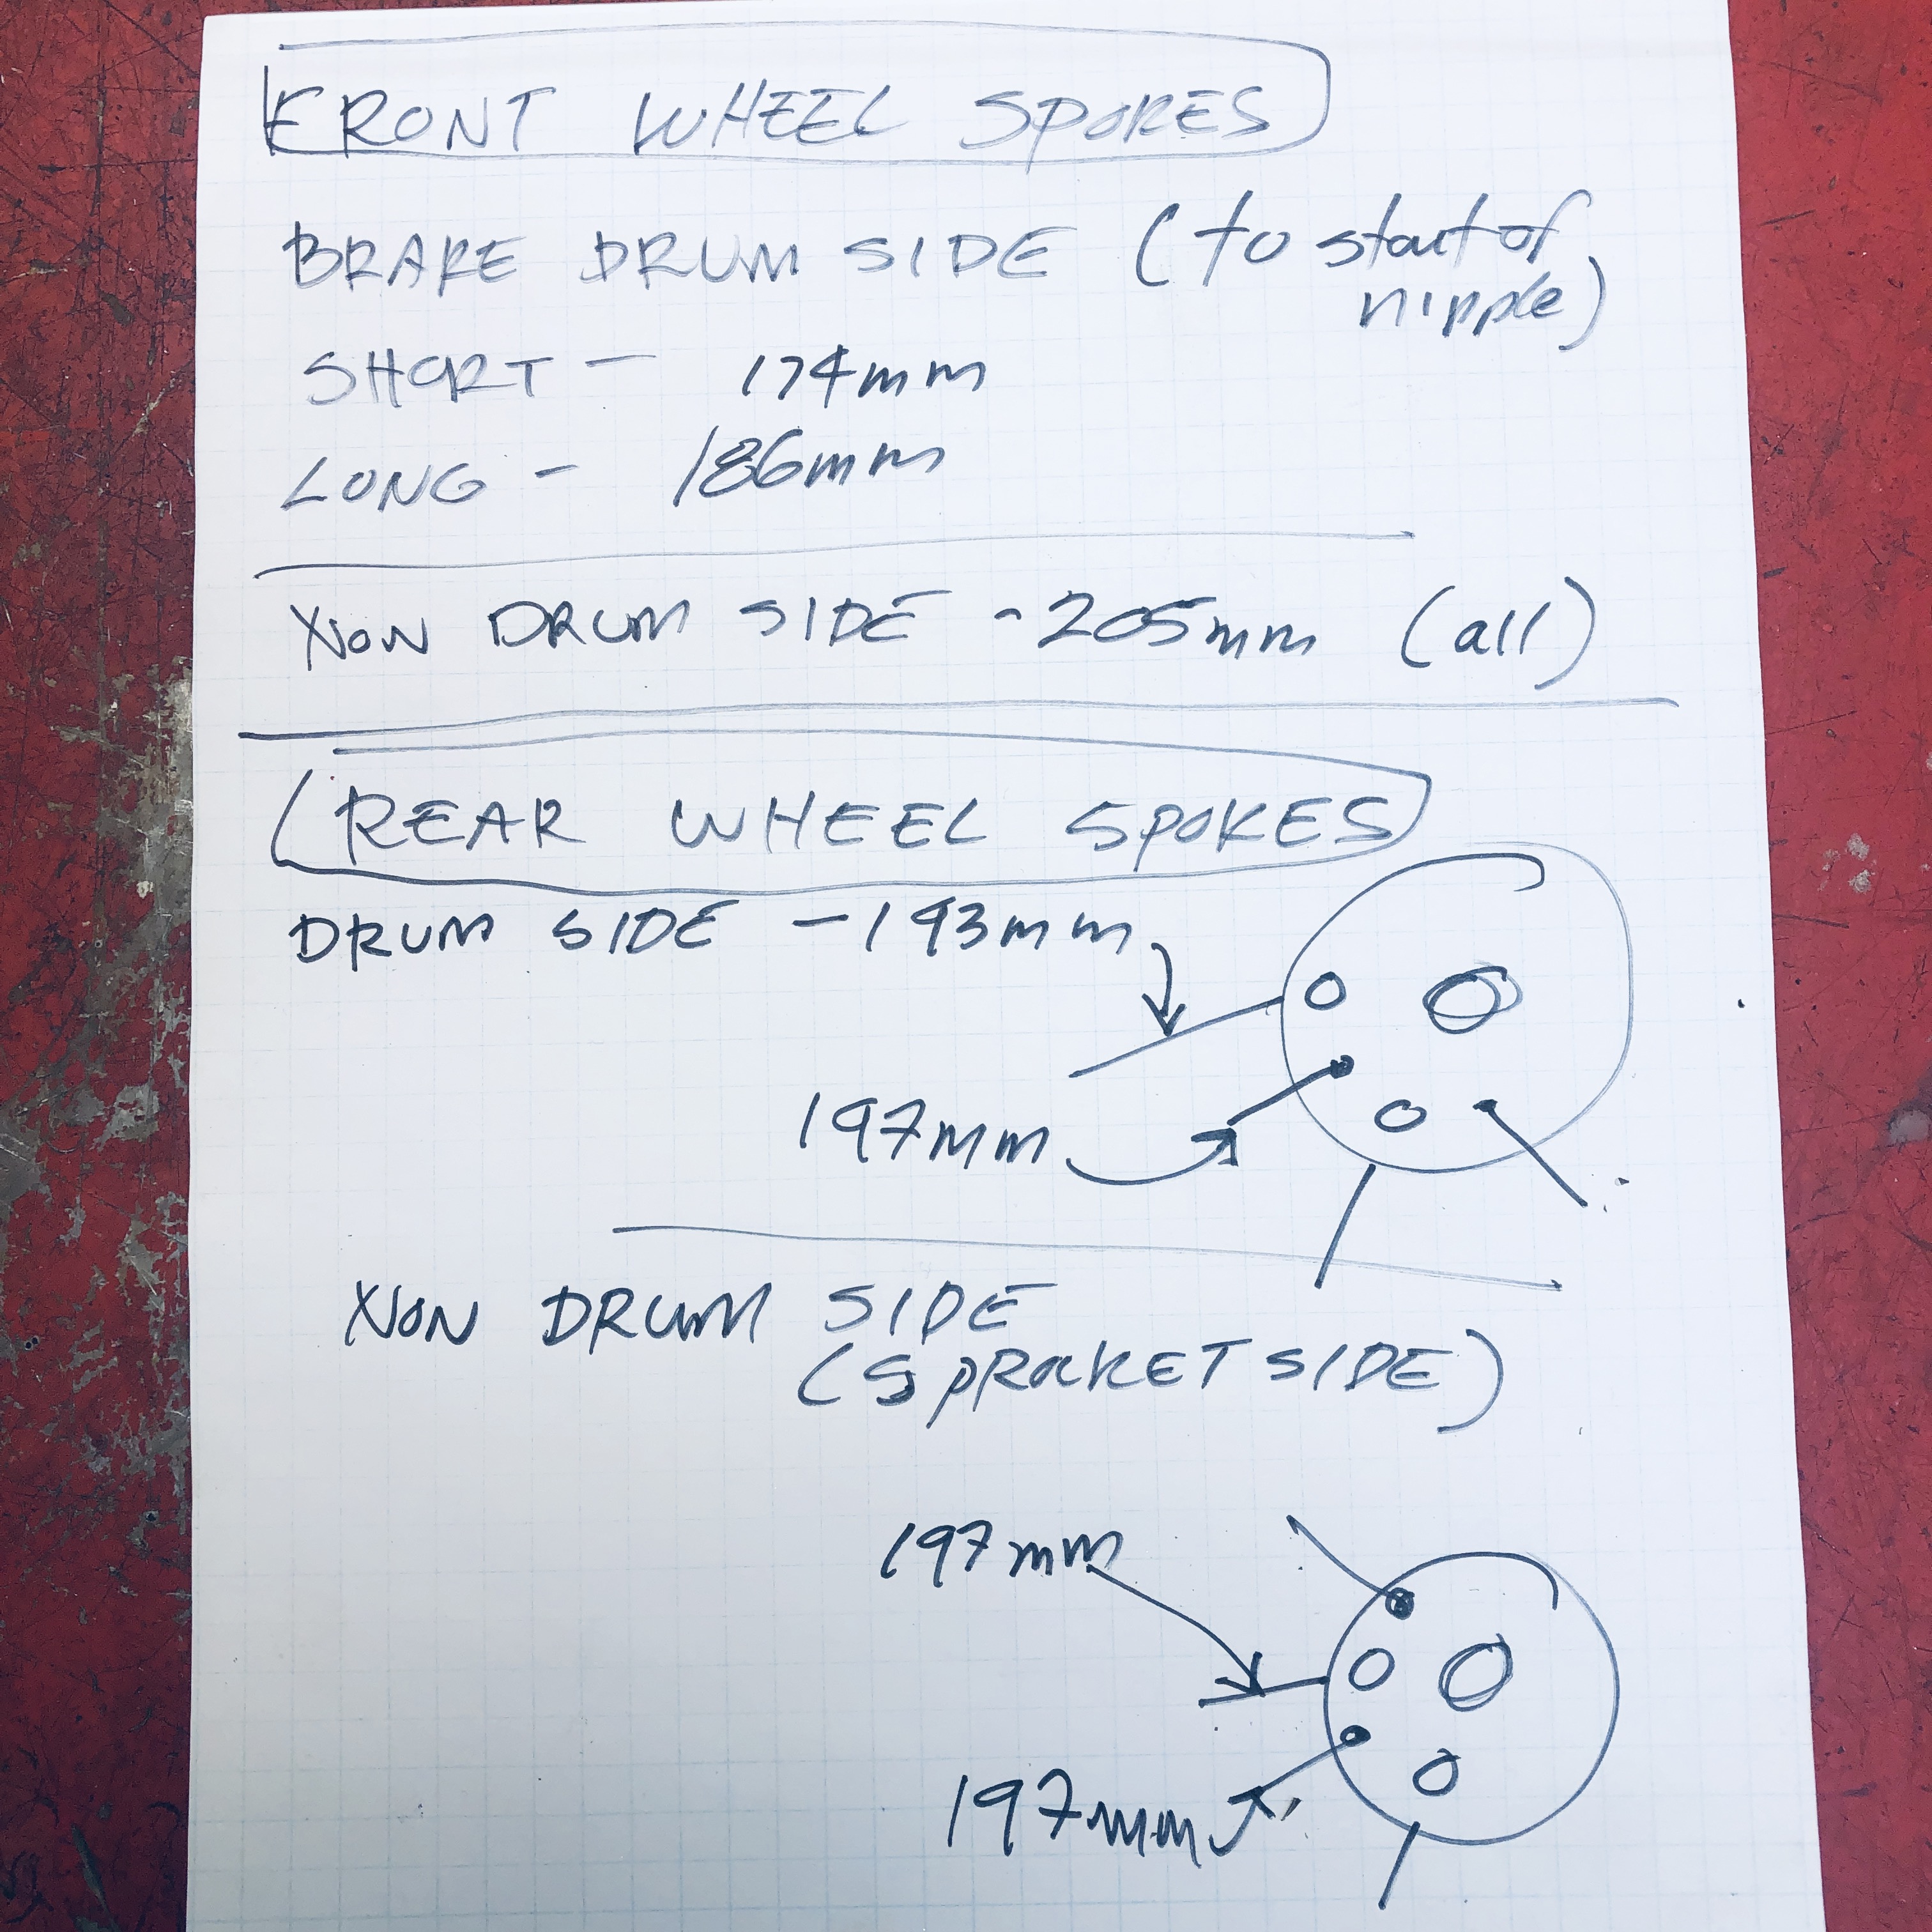 FRONT WHEEL SPOKES
BRAKE DRUM SIDE (to start of
nipple)
SHORT — 174mm
LONG - 186mm
NON DRUM SIDE - 205mm (all)
REAR WHEEL SPOKES
DRUM SIDE - 193mm
197mm
NON DRUM SIDE
(SPROCKET SIDE)
197mm
197mm